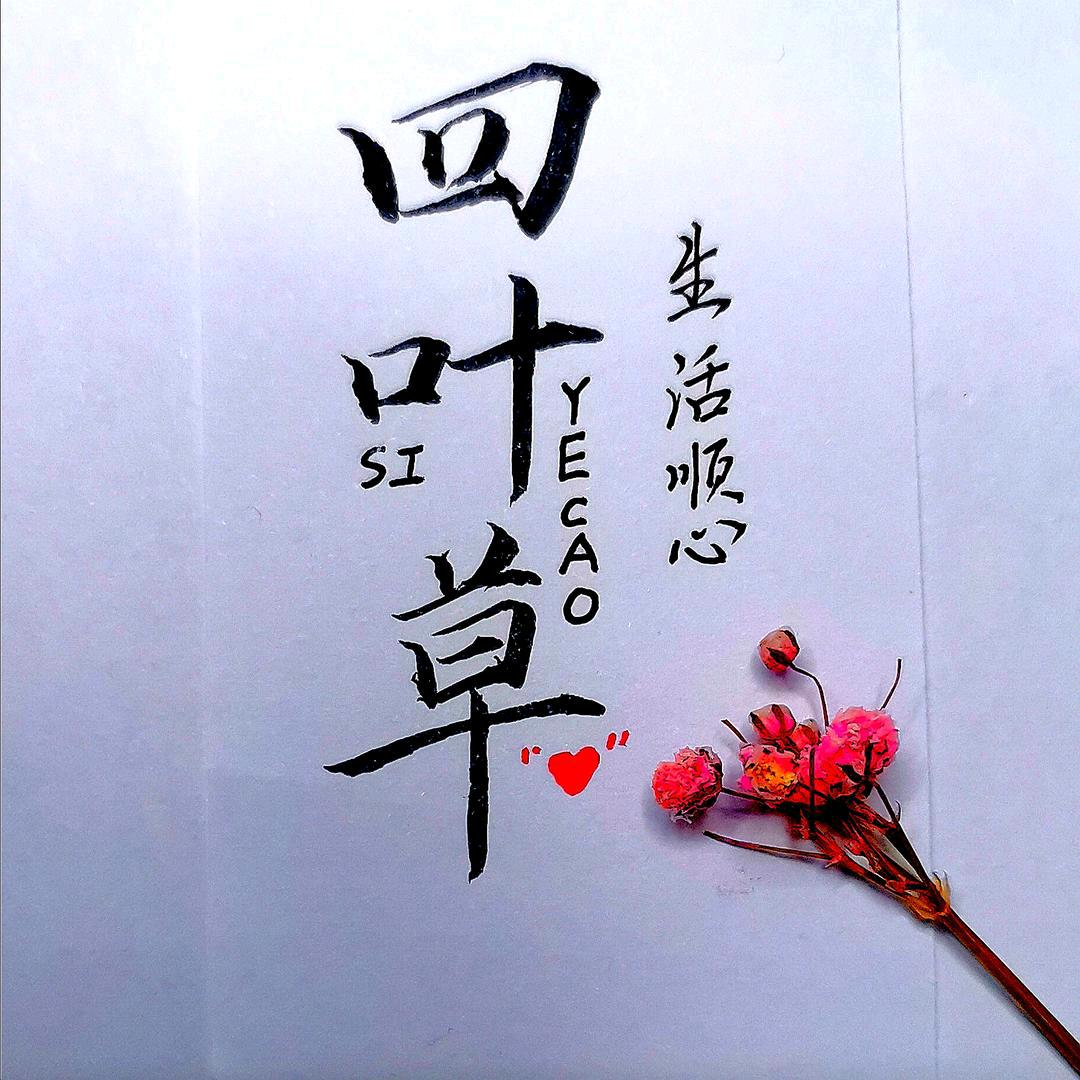 四叶草
SI
YECAO
生活顺心